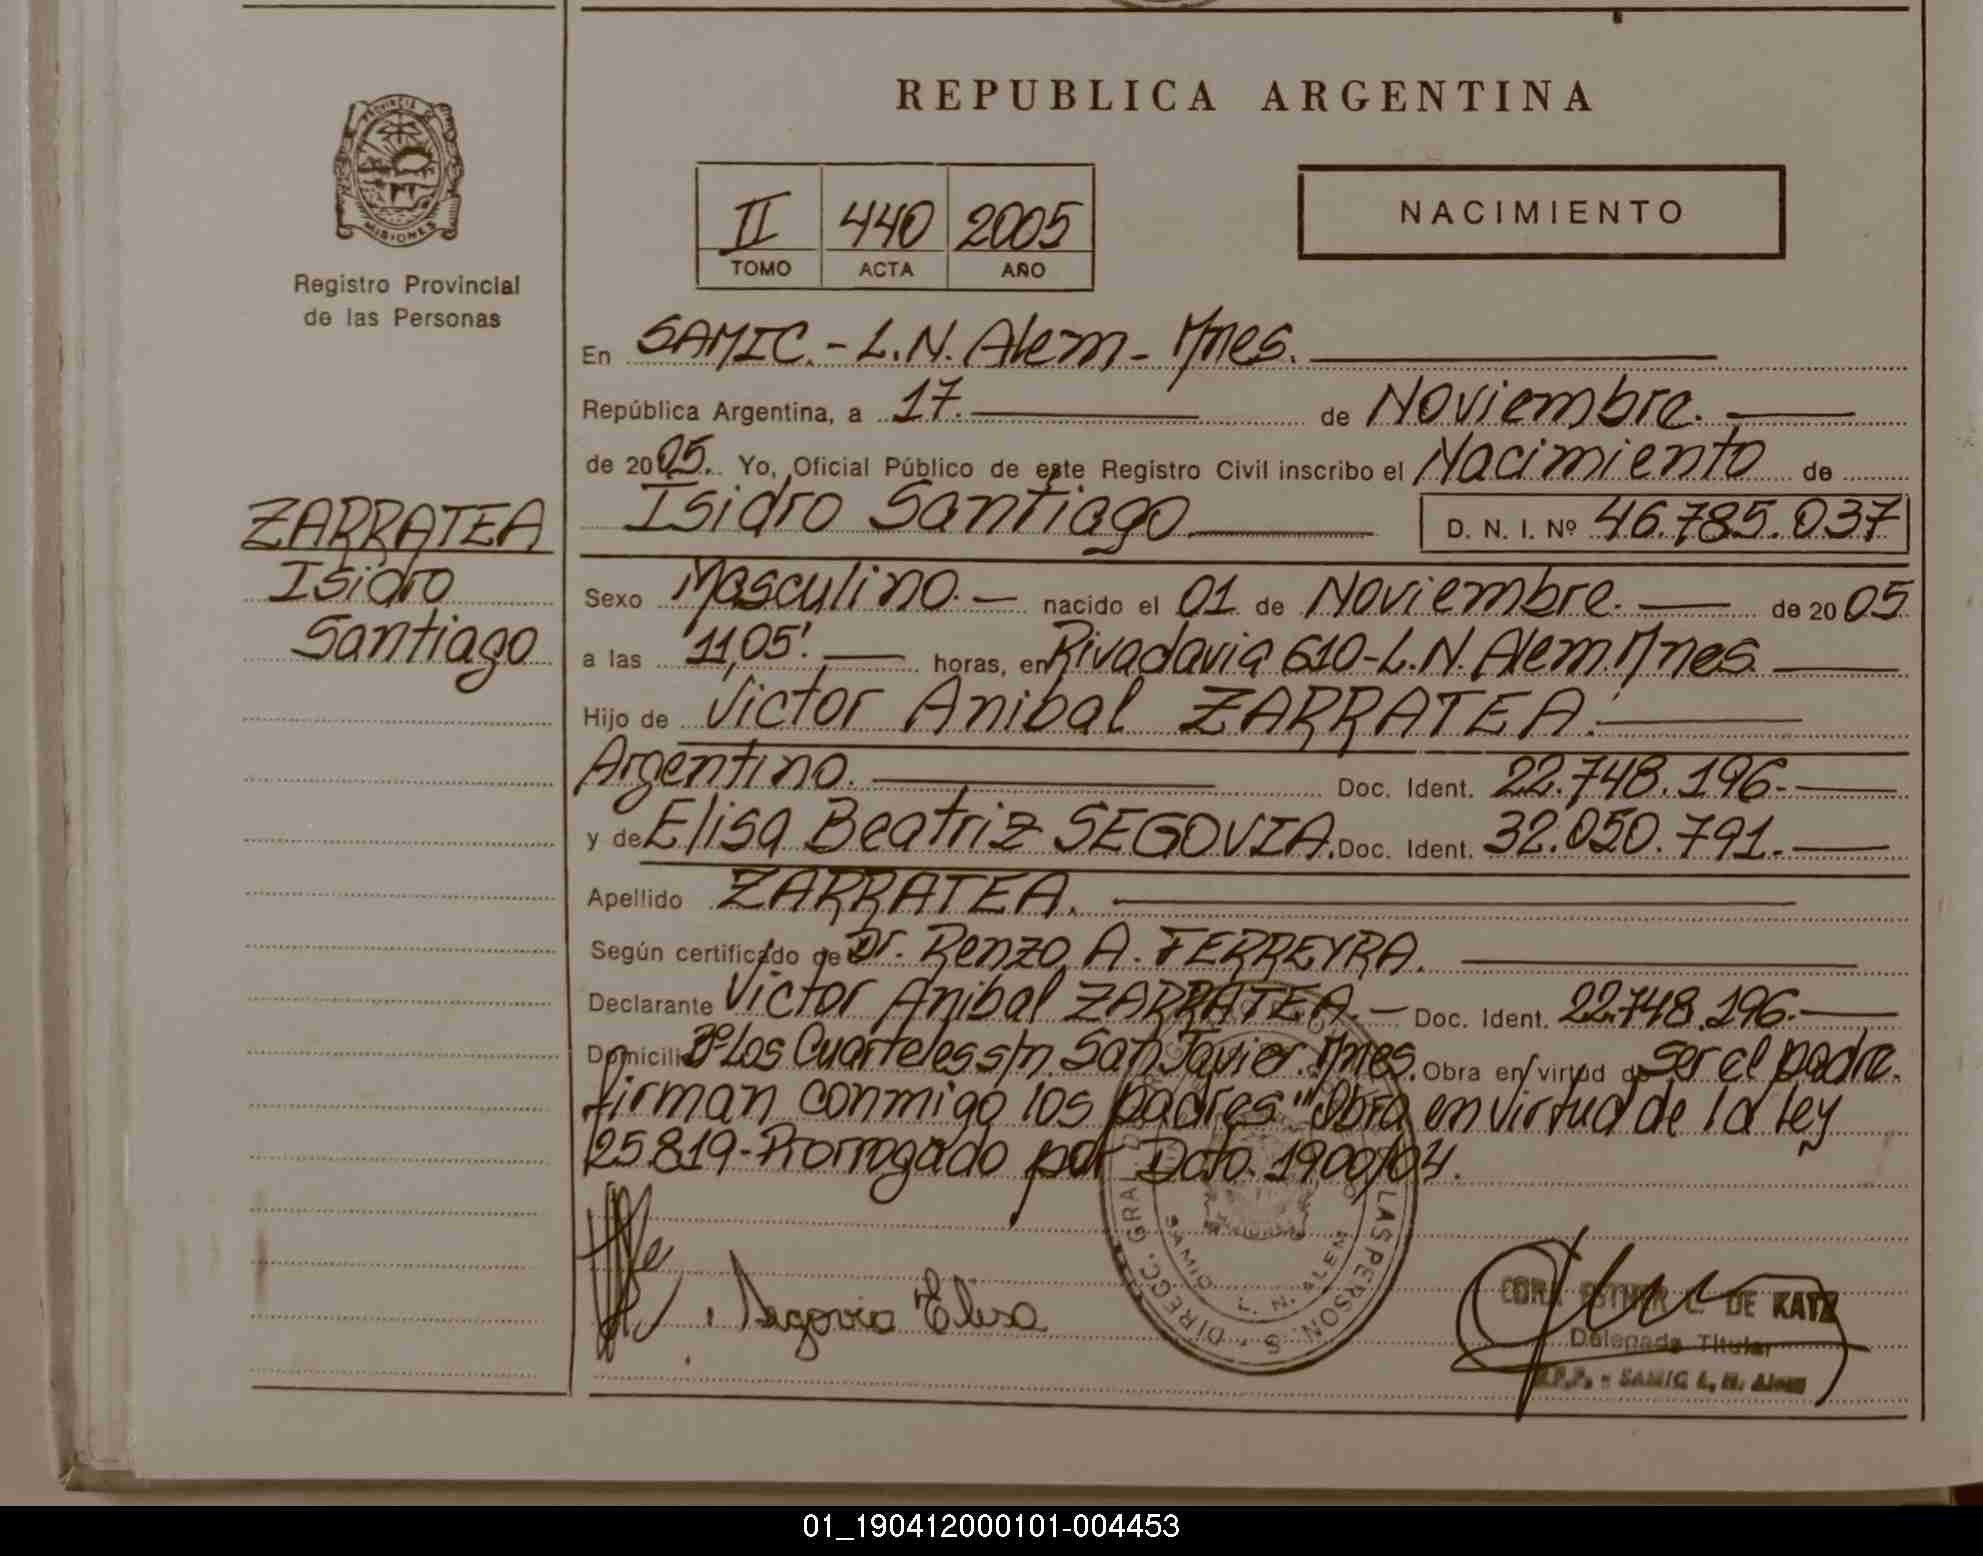 REPUBLICA ARGENTINA
PROVINCIA DE
MISIONES
Registro Provincial
de las Personas
II 440 2005
TOMO ACTA AÑO
NACIMIENTO
En SAMIC.- L.N. Alem - Mnes.
República Argentina, a 17. de Noviembre.
de 2005. Yo, Oficial Público de este Registro Civil inscribo el Nacimiento de
Isidro Santiago D. N. I. Nº 46.785.037
ZARRATEA
Isidro
Santiago
Sexo Masculino. nacido el 01 de Noviembre. de 2005
a las 11,05'. horas, en Rivadavia 610-L.N. Alem. Mnes.
Hijo de Victor Anibal ZARRATEA.
Argentino. Doc. Ident. 22.748.196.-
y de Elisa Beatriz SEGOVIA. Doc. Ident. 32.050.791.-
Apellido ZARRATEA.
Según certificado de Dr. Renzo A. FERREYRA.
Declarante Victor Anibal ZARRATEA.- Doc. Ident. 22.748.196.-
Domicilio Bº Los Cuarteles s/n. San Javier. Mnes. Obra en virtud de ser el padre.
firman conmigo los padres "Obra en virtud de la ley
25.819-Prorrogado por Dcto. 1900/04.
DIRECC. GRAL. D LAS PERSON. S
SAMIC L. N. ALEM
Segovia Elisa
CORA ESTHER L. DE KATZ
Delegada Titular
R.P.P. - SAMIC L. N. Alem
01_190412000101-004453